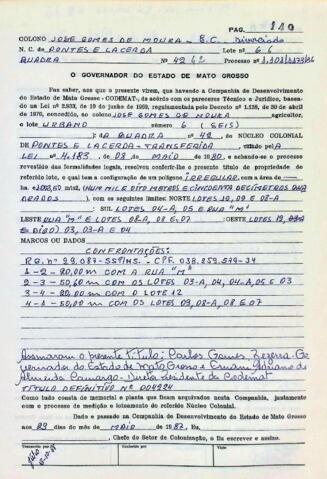 PAG. 110
COLONO JOSE GOMES DE MOURA - E.C. Divorciado
N. C. de PONTES E LACERDA Lote nº 6 6
QUADRA Nº 42
O GOVERNADOR DO ESTADO DE MATO GROSSO
Faz saber, aos que a presente virem, que havendo a Companhia de Desenvolvimento
do Estado de Mato Grosso - CODEMAT-, de acordo com os pareceres Técnico e Jurídico, baseados
em Lei nº 2.833, de 19 de junho de 1969, regulamentada pelo Decreto nº 1.138, de 30 de abril
de 1970, concedido ao colono JOSE GOMES DE MOURA agricultor,
o lote URBANO 6 (SEIS)
a QUADRA nº 48, DO NÚCLEO COLONIAL
DE PONTES E LACERDA - TRANSFERIDA pela
LEI nº 4.183, de 08 de MAIO de 1980, e achando-se o processo
revestido das formalidades legais, resolveu conferir-lhe o presente título de propriedade do
referido lote, o qual tem a configuração de um polígono IRREGULAR com a área de
(HUM MIL OITO METROS E CINCOENTA DECÍMETROS QUA
DRADOS), com os seguintes limites: NORTE LOTES 10, 09 E 08-A
: SUL LOTES 04-A, 05 E RUA "M"
LESTE RUA "M" E LOTES 08-A, 08 E 07 :OESTE LOTES 12,
E DIGO) 03, 03-A E 04
MARCOS OU DADOS
CONFRONTAÇÕES:
R.G. nº 29.087-SSP/MS. - CPF. 038.259.549-34
1-2 - 20,00 m COM A RUA "M"
2-3 - 50,60 m COM OS LOTES 03-A, 04, 04-A, 05 E 03
3-4 - 20,00 m COM O LOTE 12
4-1 - 50,00 m COM OS LOTES 09, 08-A, 08 E 07
Assinaram o presente título: Carlos Gomes Bezerra - Go
vernador do Estado de Mato Grosso e Ernani Adriano de
Almeida Camargo - Diretor Presidente da Codemat
TÍTULO DEFINITIVO Nº 004924
Como tudo consta de memorial e planta que ficam arquivados nesta Companhia, juntamente
com o processo de medição e loteamento do referido Núcleo Colonial.
Datado e passado na Companhia de Desenvolvimento do Estado de Mato Grosso
aos 29 dias do mês de MAIO de 1987. Eu,
, Chefe do Setor de Colonização, o fiz escrever e assino.
Transcrito por
Conferido por
Visto